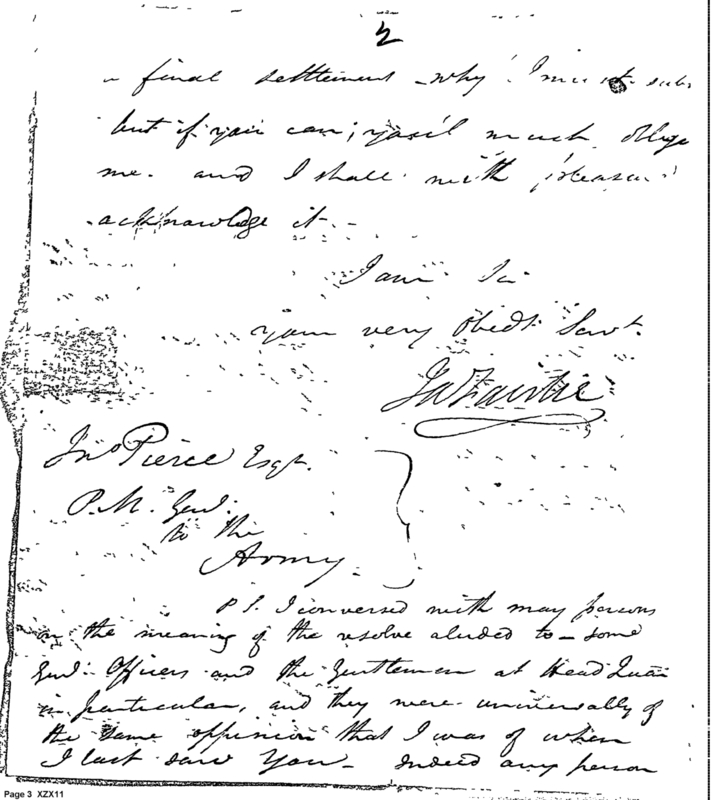 2
a final settlement - why I must
but if you can; you'l much oblige
me. and I shall with pleasure
acknowledge it -
I am Sir
your very Obedt. Servt.
Ja Fairlie
Jno Pierce Esqr.
P. M. Genl.
to the
Army.
P S. I conversed with may persons
on the meaning of the resolve aluded to - some
Genl. Officers and the Gentlemen at Head Quar
in particular, and they were universally of
the same oppinion that I was of when
I last saw You - indeed any person
Page 3 XZX11